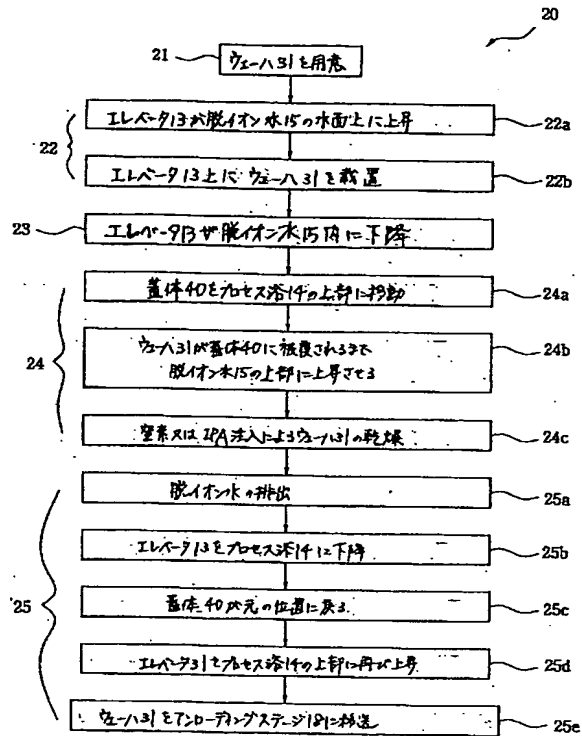 20
21
ウェーハ31を用意
エレベータ13が脱イオン水15の水面上に上昇
22a
22
エレベータ13上にウェーハ31を載置
22b
23
エレベータ13が脱イオン水15内に下降
蓋体40をプロセス浴14の上部に移動
24a
ウェーハ31が蓋体40に被覆されるまで
脱イオン水15の上部に上昇させる
24b
24
窒素又はIPA注入によるウェーハ31の乾燥
24c
脱イオン水の排出
25a
エレベータ13をプロセス浴14に下降
25b
25
蓋体40が元の位置に戻る
25c
エレベータ31をプロセス浴14の上部に再び上昇
25d
ウェーハ31をアンローディングステージ181に移送
25e